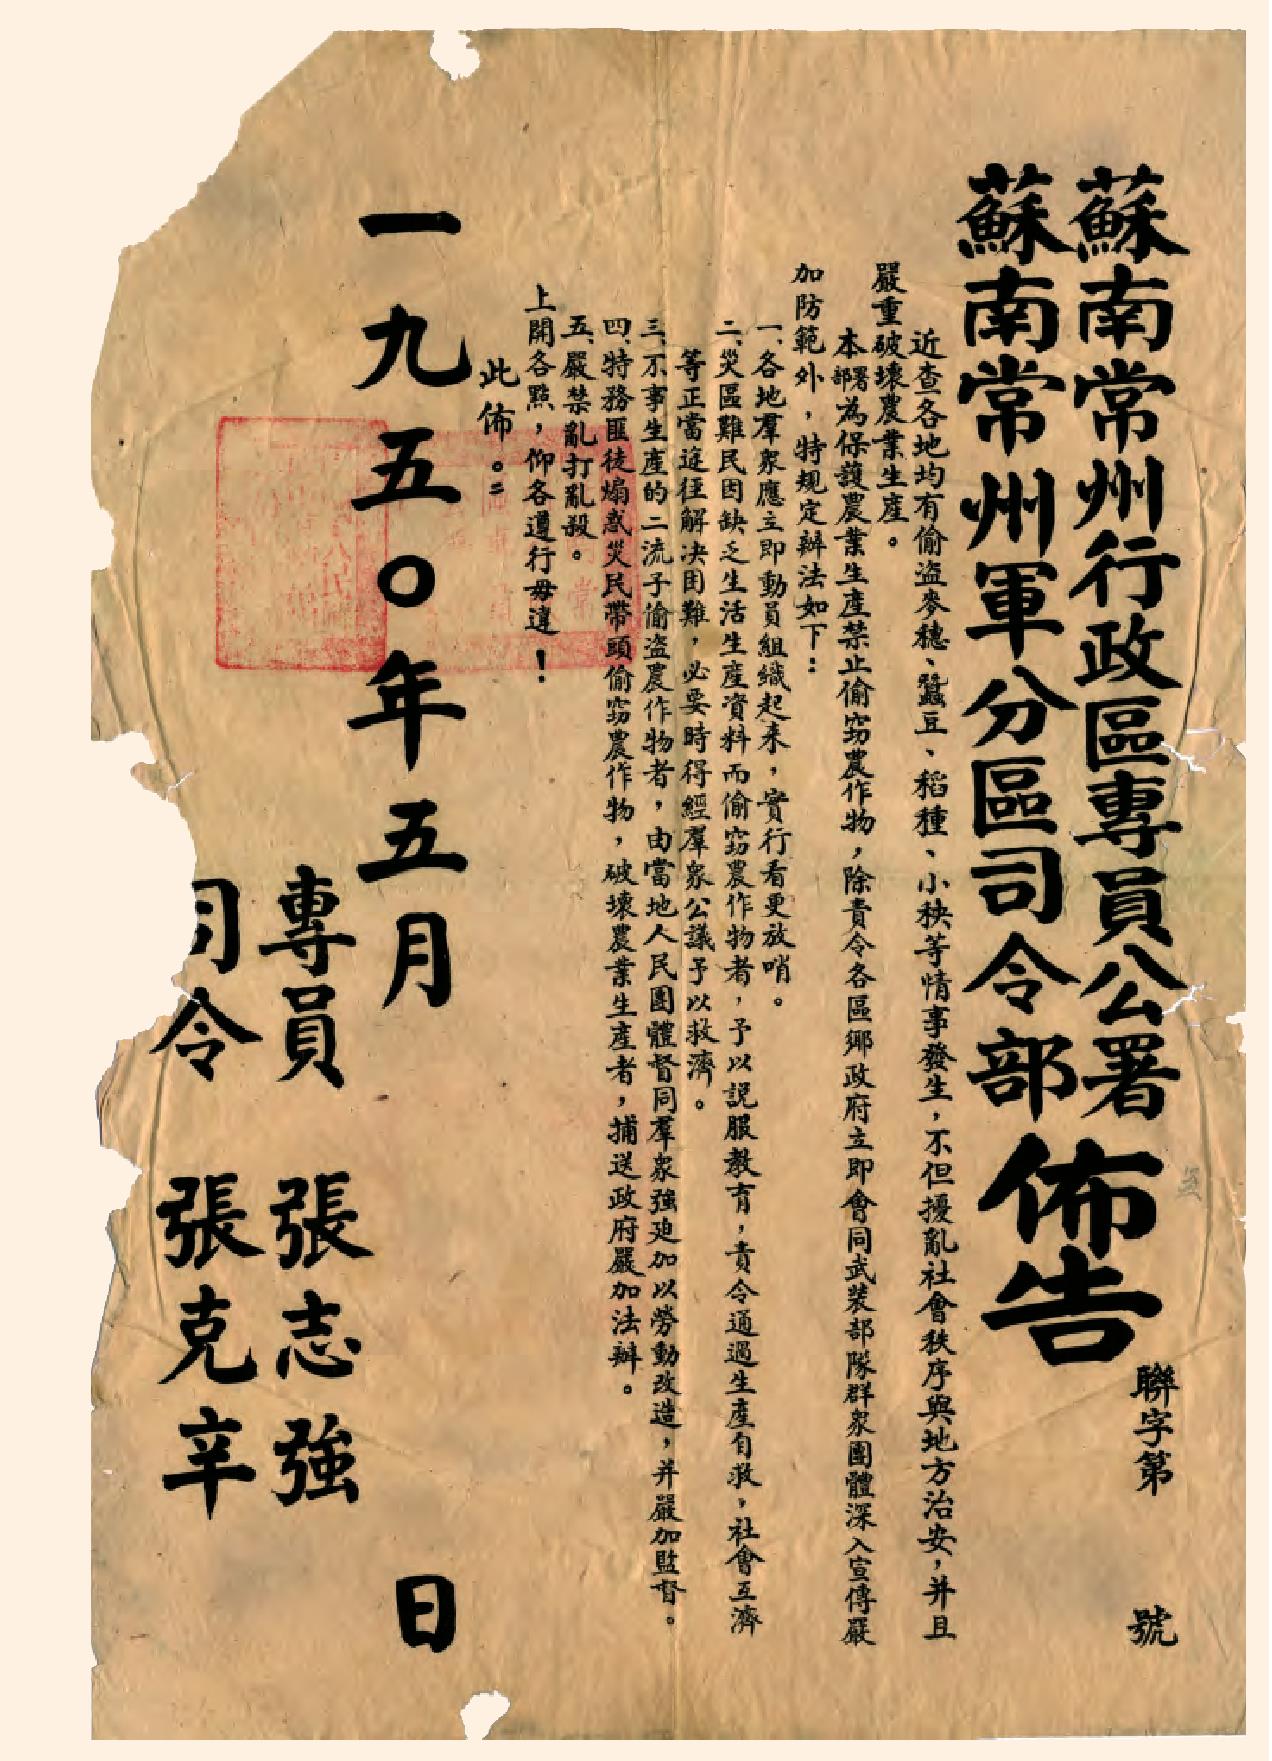 蘇南常州行政區專員公署
蘇南常州軍分區司令部
佈告
聯字第　號
近查各地均有偷盜麥穗、蠶豆、稻種、小秧等情事發生，不但擾亂社會秩序與地方治安，并且
嚴重破壞農業生產。
本部署為保護農業生產禁止偷窃農作物，除責令各區鄉政府立即會同武装部隊群衆團體深入宣傳嚴
加防範外，特規定辦法如下：
一、各地羣衆應立即動員組織起来，實行看更放哨。
二、災區難民因缺乏生活生產資料而偷窃農作物者，予以説服教育，責令通過生產自救，社會互濟
等正當途徑解决困難，必要時得經羣衆公議予以救濟。
三、不事生產的二流子偷盜農作物者，由當地人民團體督同羣衆強廹加以勞動改造，并嚴加監督。
四、特務匪徒煽惑災民帶頭偷窃農作物，破壞農業生產者，捕送政府嚴加法辦。
五、嚴禁亂打亂殺。
上開各點，仰各遵行毋違！
此佈。=
一九五〇年五月　日
專員　張志強
司令　張克辛